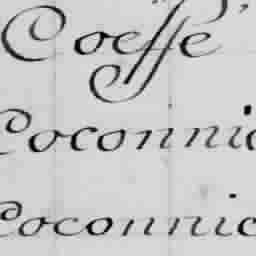 Coeffe
Coconnic
Coconnic